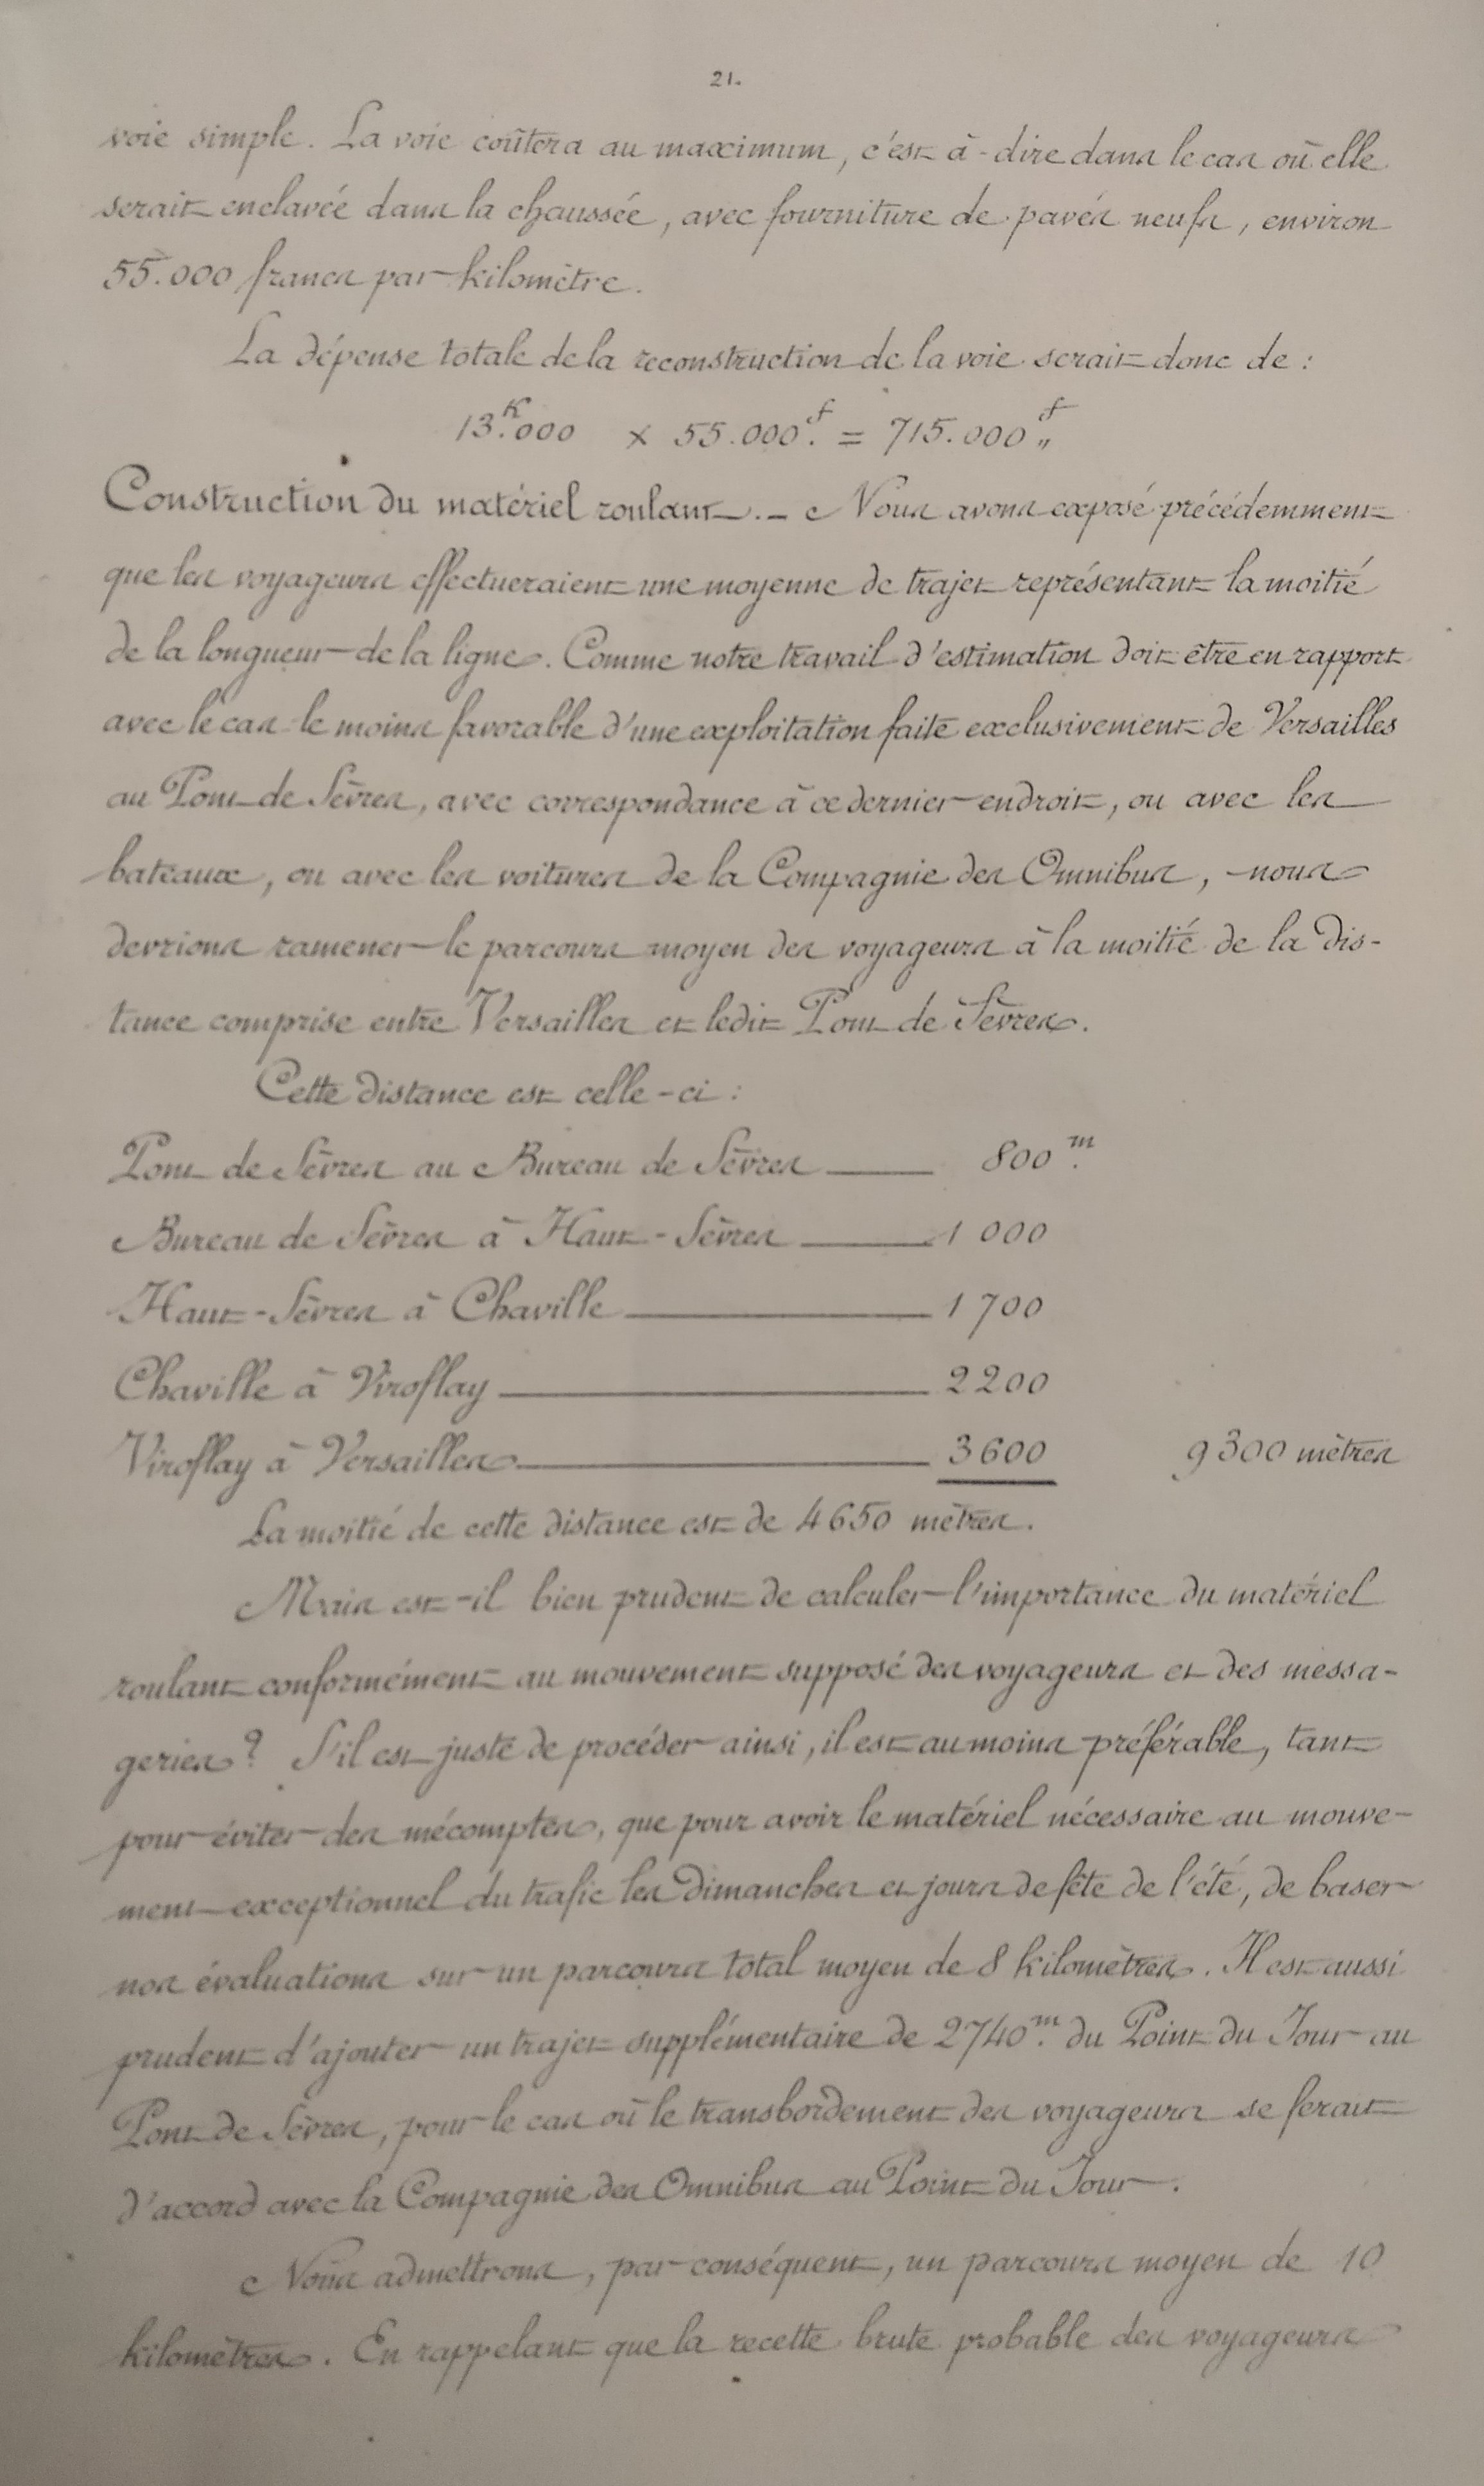 21.
voie simple. La voie coûtera au maximum, c'est à-dire dans le cas où elle
serait enclavée dans la chaussée, avec fourniture de pavés neufs, environ
55.000 francs par kilomètre.
La dépense totale de la reconstruction de la voie serait donc de :
13.K000 x 55.000.f = 715.000f„
Construction du matériel roulant. _ Nous avons exposé précédemment
que les voyageurs effectueraient une moyenne de trajet représentant la moitié
de la longueur de la ligne. Comme notre travail d'estimation doit être en rapport
avec le cas le moins favorable d'une exploitation faite exclusivement de Versailles
au Pont de Sèvres, avec correspondance à ce dernier endroit, ou avec les
bateaux, ou avec les voitures de la Compagnie des Omnibus, nous
devrions ramener le parcours moyen des voyageurs à la moitié de la dis-
tance comprise entre Versailles et ledit Pont de Sèvres.
Cette distance est celle-ci :
Pont de Sèvres au Bureau de Sèvres ___ 800 m.
Bureau de Sèvres à Haut-Sèvres ___ 1 000
Haut-Sèvres à Chaville ___ 1 700
Chaville à Viroflay ___ 2200
Viroflay à Versailles ___ 3600 9300 mètres
La moitié de cette distance est de 4650 mètres.
Mais est-il bien prudent de calculer l'importance du matériel
roulant conformément au mouvement supposé des voyageurs et des messa-
geries ? S'il est juste de procéder ainsi, il est au moins préférable, tant
pour éviter des mécomptes, que pour avoir le matériel nécessaire au mouve-
ment exceptionnel du trafic les dimanches et jours de fête de l'été, de baser
nos évaluations sur un parcours total moyen de 8 kilomètres. Il est aussi
prudent d'ajouter un trajet supplémentaire de 2740m. du Point du Jour au
Pont de Sèvres, pour le cas où le transbordement des voyageurs se ferait
d'accord avec la Compagnie des Omnibus au Point du Jour.
Nous admettrons, par conséquent, un parcours moyen de 10
kilomètres. En rappelant que la recette brute probable des voyageurs